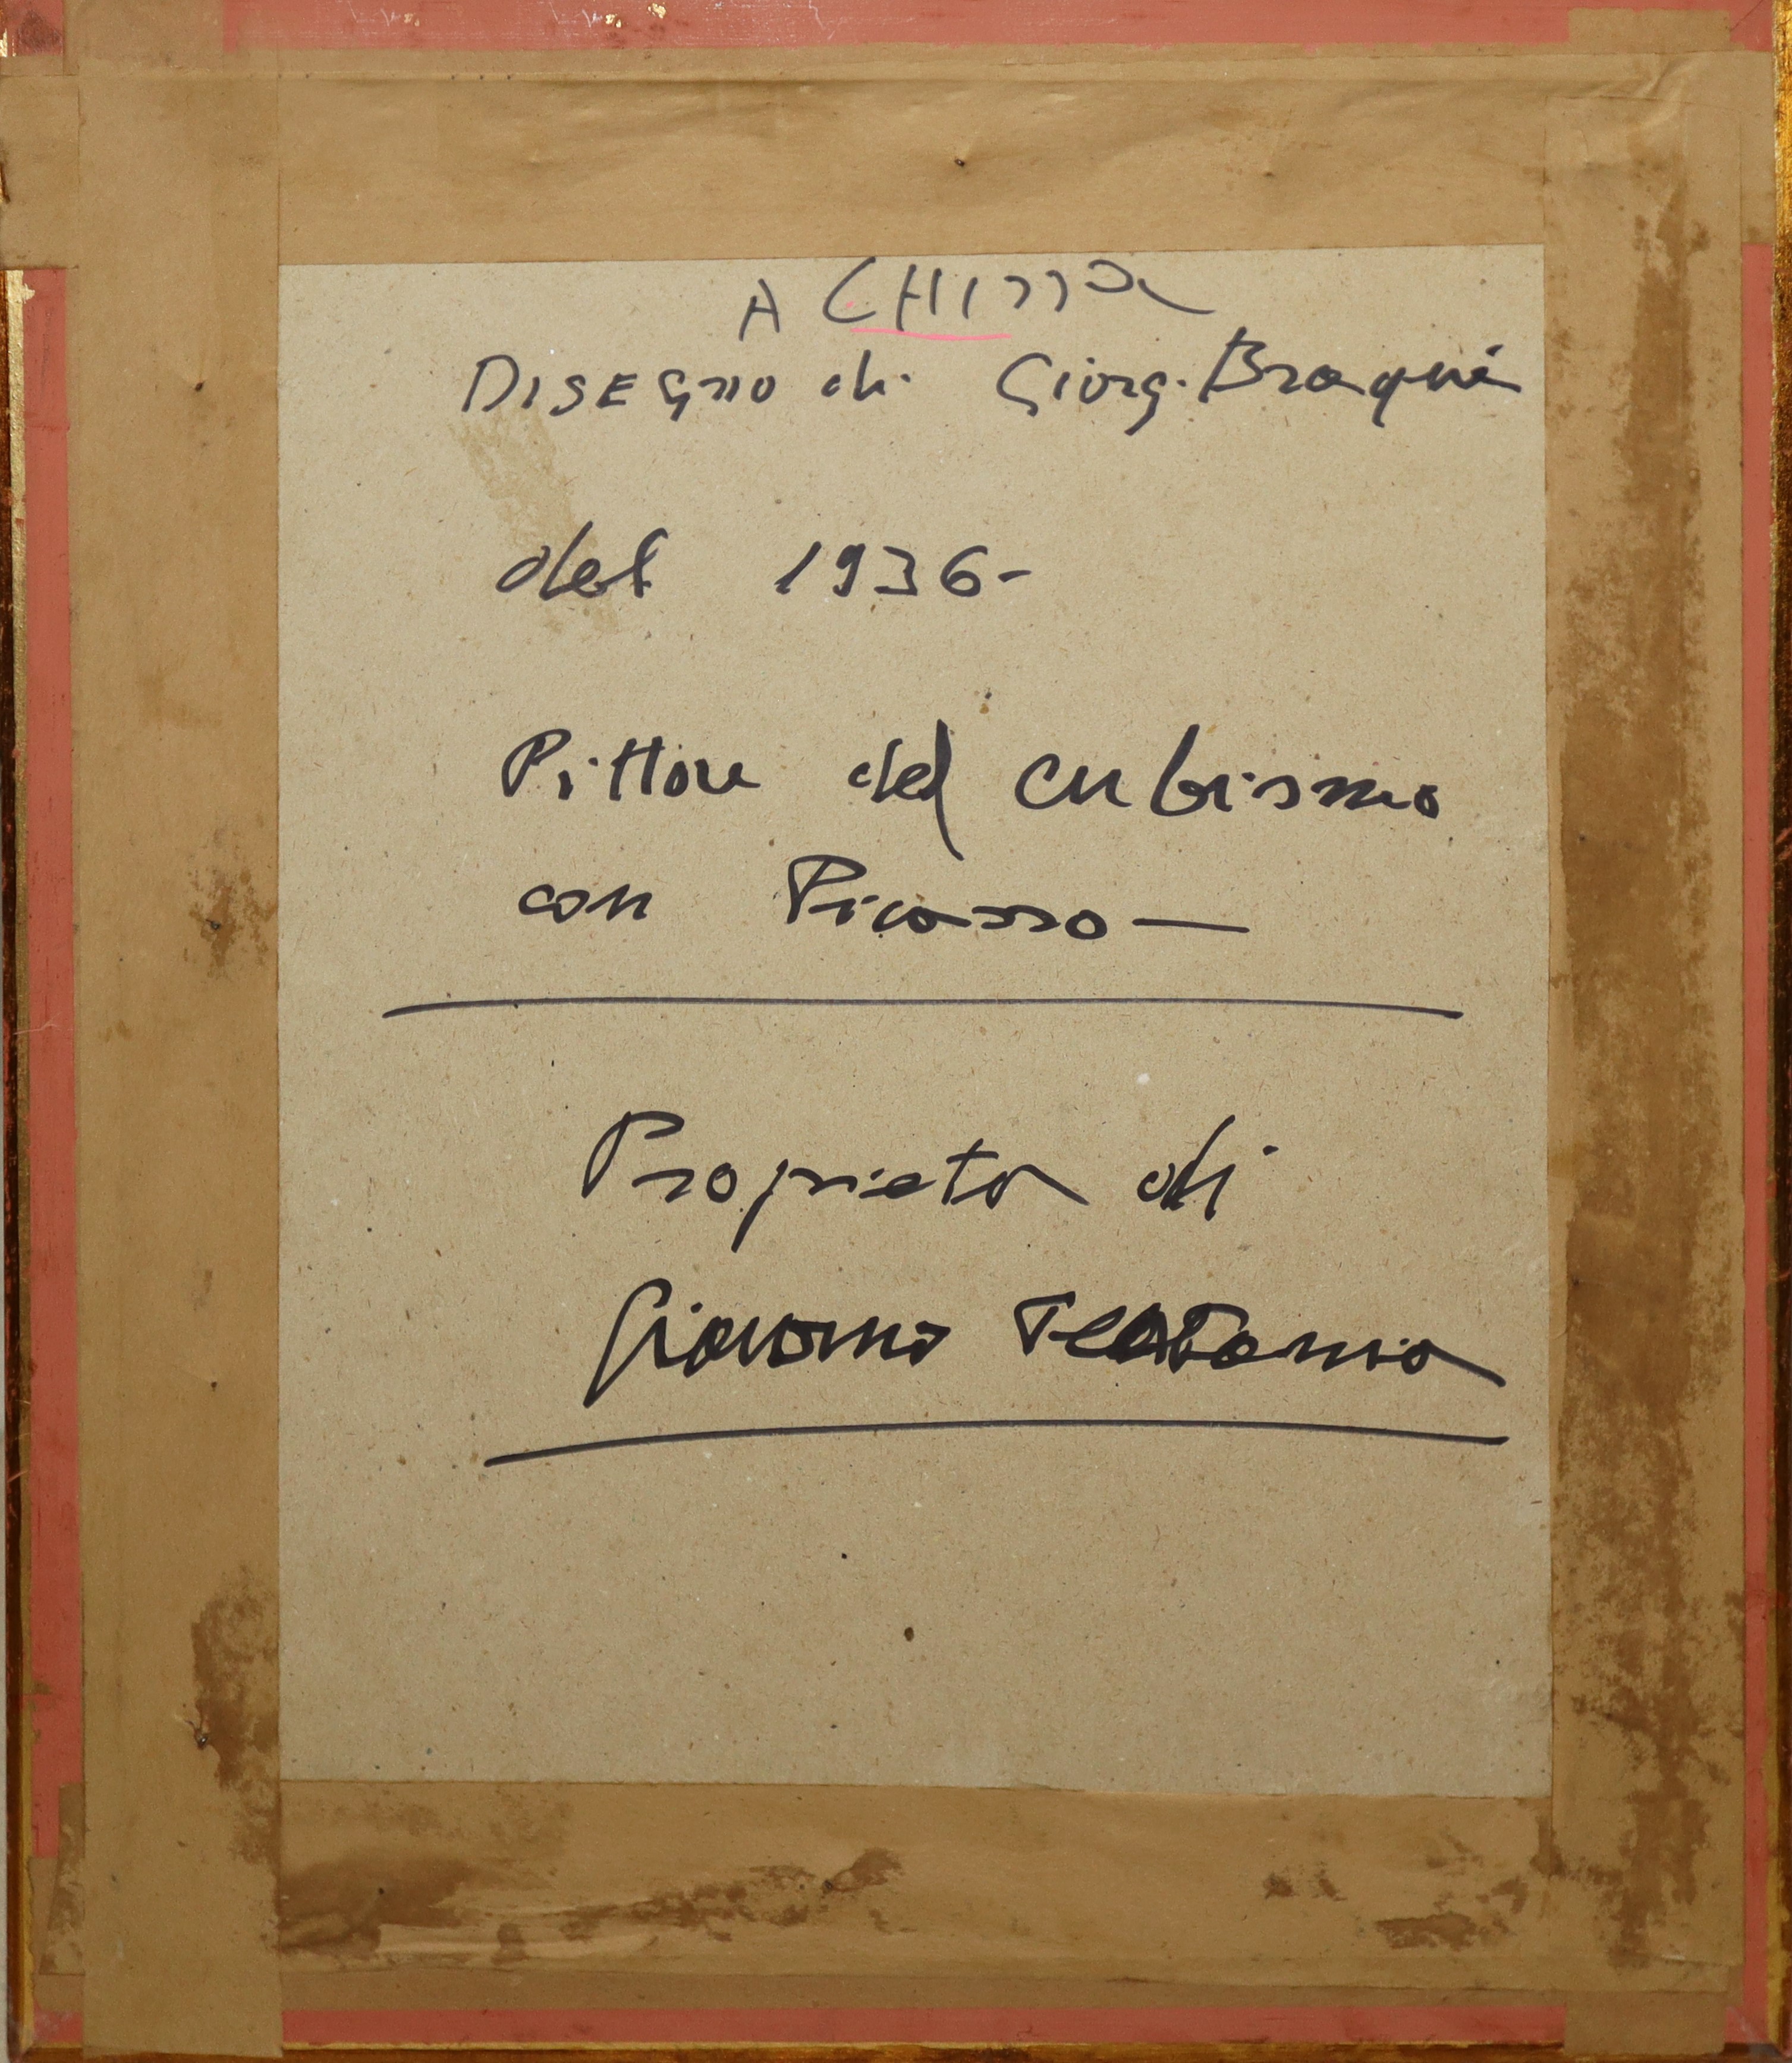 A CHIARA
DISEGNO di Giorg. Braque
del 1936-
Pittore del cubismo
con Picasso —
Proprieta di
Giovanni